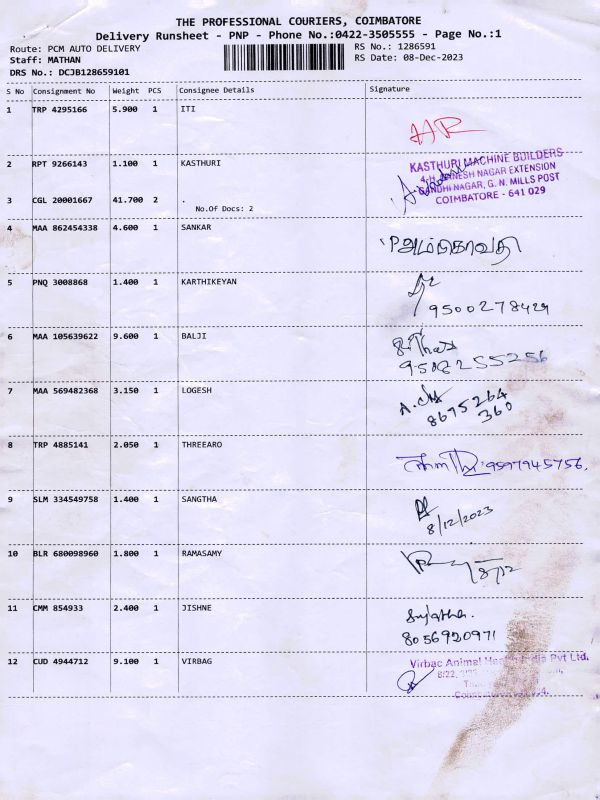 THE PROFESSIONAL COURIERS, COIMBATORE
Delivery Runsheet - PNP - Phone No.:0422-3505555 - Page No.:1
Route: PCM AUTO DELIVERY
RS No.: 1286591
Staff: MATHAN
RS Date: 08-Dec-2023
DRS No.: DCJB128659101
S No Consignment No Weight PCS Consignee Details Signature
1 TRP 4295166 5.900 1 ITI
2 RPT 9266143 1.100 1 KASTHURI
KASTHURI MACHINE BUILDERS
GANESH NAGAR EXTENSION
GANDHI NAGAR, G. N. MILLS POST
COIMBATORE - 641 029
3 CGL 20001667 41.700 2 .
No.Of Docs: 2
4 MAA 862454338 4.600 1 SANKAR
5 PNQ 3008868 1.400 1 KARTHIKEYAN
9500278429
6 MAA 105639622 9.600 1 BALJI
7 MAA 569482368 3.150 1 LOGESH
8695264
360
8 TRP 4885141 2.050 1 THREEARO
9597945756
9 SLM 334549758 1.400 1 SANGTHA
8/12/2023
10 BLR 680098960 1.800 1 RAMASAMY
8/12
11 CMM 854933 2.400 1 JISHNE
Sujatha.
8056920971
12 CUD 4944712 9.100 1 VIRBAG
Virbac Animal Health India Pvt Ltd.